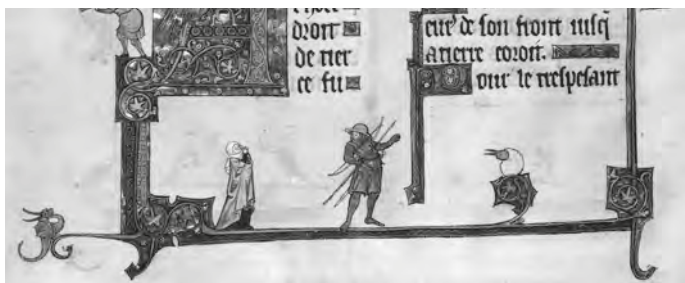 droit
de tier
ce fu
eur de son front iusq̃
a tierre coroit.
Pour le trespesant